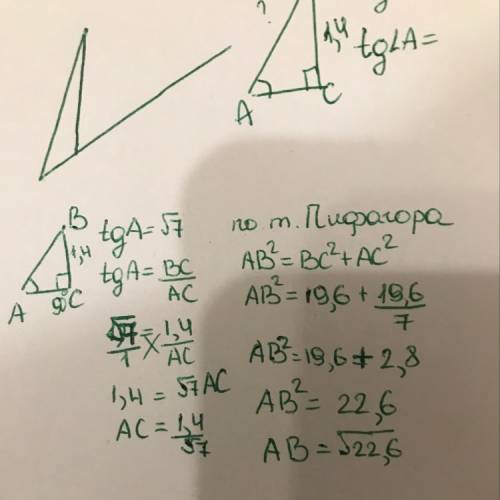 ?
1,4
tg∠A=
A
C
B
1,4
A
90°
C
tgA=√7
tgA=BC/AC
√7/1 = 1,4/AC
1,4 = √7 AC
AC = 1,4/√7
по т. Пифагора
AB²=BC²+AC²
AB²=19,6 + 19,6/7
AB²=19,6+2,8
AB²= 22,6
AB=√22,6